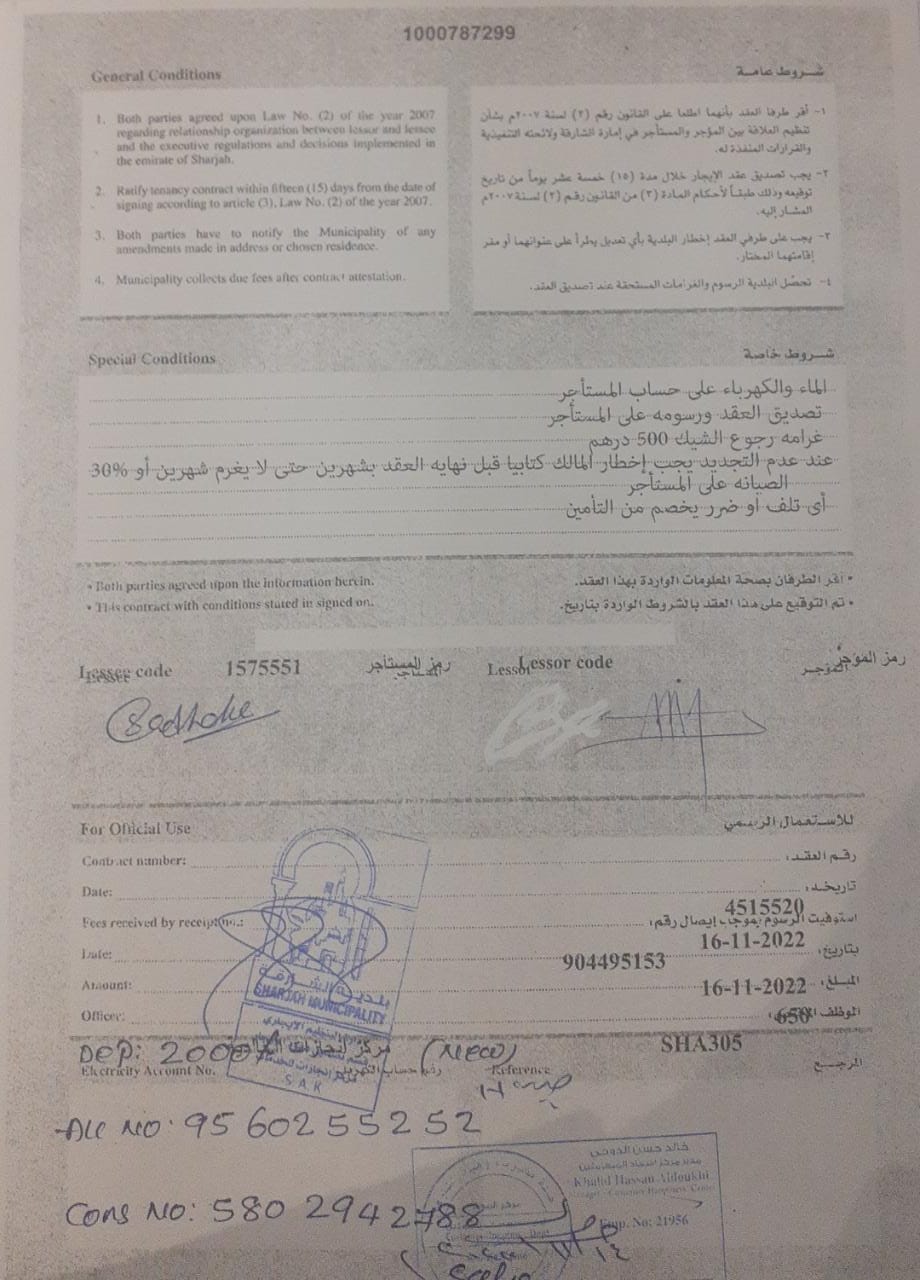 1000787299
General Conditions
شروط عامة
1. Both parties agreed upon Law No. (2) of the year 2007
regarding relationship organization between lessor and lessee
and the executive regulations and decisions implemented in
the emirate of Sharjah.
2. Ratify tenancy contract within fifteen (15) days from the date of
signing according to article (3), Law No. (2) of the year 2007.
3. Both parties have to notify the Municipality of any
amendments made in address or chosen residence.
4. Municipality collects due fees after contract attestation.
١- أقر طرفا العقد بأنهما اطلعا على القانون رقم (٢) لسنة ٢٠٠٧م بشأن
تنظيم العلاقة بين المؤجر والمستأجر في إمارة الشارقة ولائحته التنفيذية
والقرارات المنفذة له.
٢- يجب تصديق عقد الإيجار خلال مدة (١٥) خمسة عشر يوماً من تاريخ
توقيعه وذلك طبقاً لأحكام المادة (٣) من القانون رقم (٢) لسنة ٢٠٠٧م
المشار إليه.
٣- يجب على طرفي العقد إخطار البلدية بأي تعديل يطرأ على عنوانهما أو مقر
إقامتهما المختار.
٤- تحصل البلدية الرسوم والغرامات المستحقة عند تصديق العقد.
Special Conditions
شروط خاصة
الماء والكهرباء على حساب المستأجر
تصديق العقد ورسومه على المستأجر
غرامه رجوع الشيك 500 درهم
عند عدم التجديد يجب إخطار المالك كتابيا قبل نهايه العقد بشهرين حتى لا يغرم شهرين أو 30%
الصيانه على المستأجر
أى تلف او ضرر يخصم من التأمين
• Both parties agreed upon the information herein.
• أقر الطرفان بصحة المعلومات الواردة بهذا العقد.
• This contract with conditions stated in signed on.
• تم التوقيع على هذا العقد بالشروط الواردة بتاريخ.
Lessee code 1575551 رمز المستأجر Lessor Lessor code رمز المؤجر
Lessee المستأجر المؤجر
For Official Use
للاستعمال الرسمي
Contract number: رقم العقد:
Date: تاريخه:
4515520
Fees received by receipt no.: استوفيت الرسوم بموجب إيصال رقم:
16-11-2022
Date: 904495153 بتاريخ:
Amount: 16-11-2022 المبلغ:
Officer: 650 الموظف
SHA305
بلدية الشارقة
SHARJAH MUNICIPALITY
S A K
DEP: 2000/ (NECO)
Electricity Account No. رقم حساب الكهرباء Reference المرجع
A/C NO: 95 602 55 252
Cons NO: 580 2942788
خالد حسن الدوخي
Khalid Hassan Aldoukhi
Emp. No: 21956